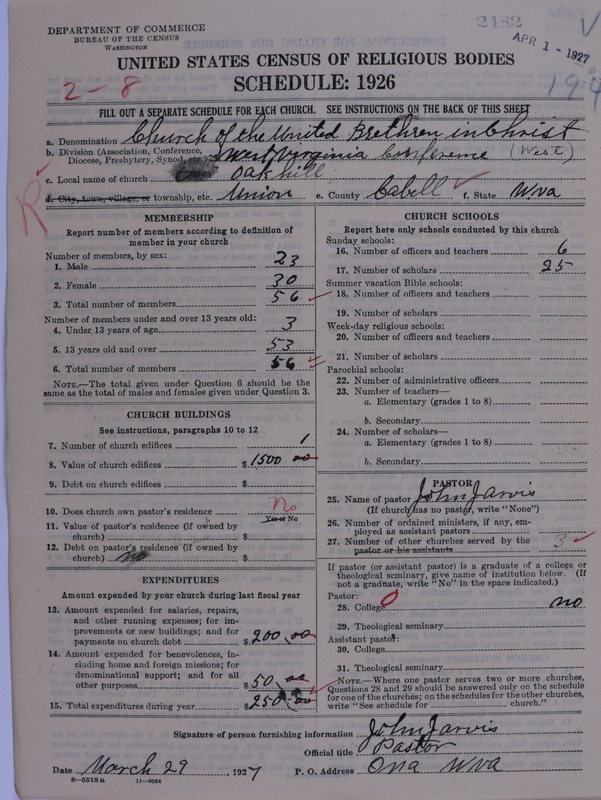 DEPARTMENT OF COMMERCE
BUREAU OF THE CENSUS
WASHINGTON
2182
APR 1 - 1927
194
UNITED STATES CENSUS OF RELIGIOUS BODIES
SCHEDULE: 1926
2-8
FILL OUT A SEPARATE SCHEDULE FOR EACH CHURCH. SEE INSTRUCTIONS ON THE BACK OF THIS SHEET
a. Denomination Church of the United Brethren in Christ
b. Division (Association, Conference, Diocese, Presbytery, Synod, etc.) West Virginia Conference (West)
c. Local name of church Oak hill
d. City, town, village, or township, etc. Union e. County Cabell f. State W.va
R
MEMBERSHIP
Report number of members according to definition of
member in your church
Number of members, by sex:
1. Male 23
2. Female 30
3. Total number of members 56
Number of members under and over 13 years old:
4. Under 13 years of age 3
5. 13 years old and over 53
6. Total number of members 56
NOTE.—The total given under Question 6 should be the
same as the total of males and females given under Question 3.
CHURCH BUILDINGS
See instructions, paragraphs 10 to 12
7. Number of church edifices 1
8. Value of church edifices $ 1500 00
9. Debt on church edifices $
10. Does church own pastor's residence No
Yes or No
11. Value of pastor's residence (if owned by
church) $
12. Debt on pastor's residence (if owned by
church) no $
EXPENDITURES
Amount expended by your church during last fiscal year
13. Amount expended for salaries, repairs,
and other running expenses; for im-
provements or new buildings; and for
payments on church debt $ 200.00
14. Amount expended for benevolences, in-
cluding home and foreign missions; for
denominational support; and for all
other purposes $ 50 00
15. Total expenditures during year $ 250 00
CHURCH SCHOOLS
Report here only schools conducted by this church
Sunday schools:
16. Number of officers and teachers 6
17. Number of scholars 25
Summer vacation Bible schools:
18. Number of officers and teachers
19. Number of scholars
Week-day religious schools:
20. Number of officers and teachers
21. Number of scholars
Parochial schools:
22. Number of administrative officers
23. Number of teachers—
a. Elementary (grades 1 to 8)
b. Secondary
24. Number of scholars—
a. Elementary (grades 1 to 8)
b. Secondary
PASTOR
25. Name of pastor John Jarvis
(If church has no pastor, write "None")
26. Number of ordained ministers, if any, em-
ployed as assistant pastors
27. Number of other churches served by the
pastor or his assistants 3
If pastor (or assistant pastor) is a graduate of a college or
theological seminary, give name of institution below. (If
not a graduate, write "No" in the space indicated.)
Pastor:
28. College 0 no
29. Theological seminary
Assistant pastor:
30. College
31. Theological seminary
NOTE.—Where one pastor serves two or more churches,
Questions 28 and 29 should be answered only on the schedule
for one of the churches; on the schedules for the other churches,
write "See schedule for church."
Signature of person furnishing information John Jarvis
Official title Pastor
Date March 29, 1927 P. O. Address Ona W va
8-5518a 11-9084